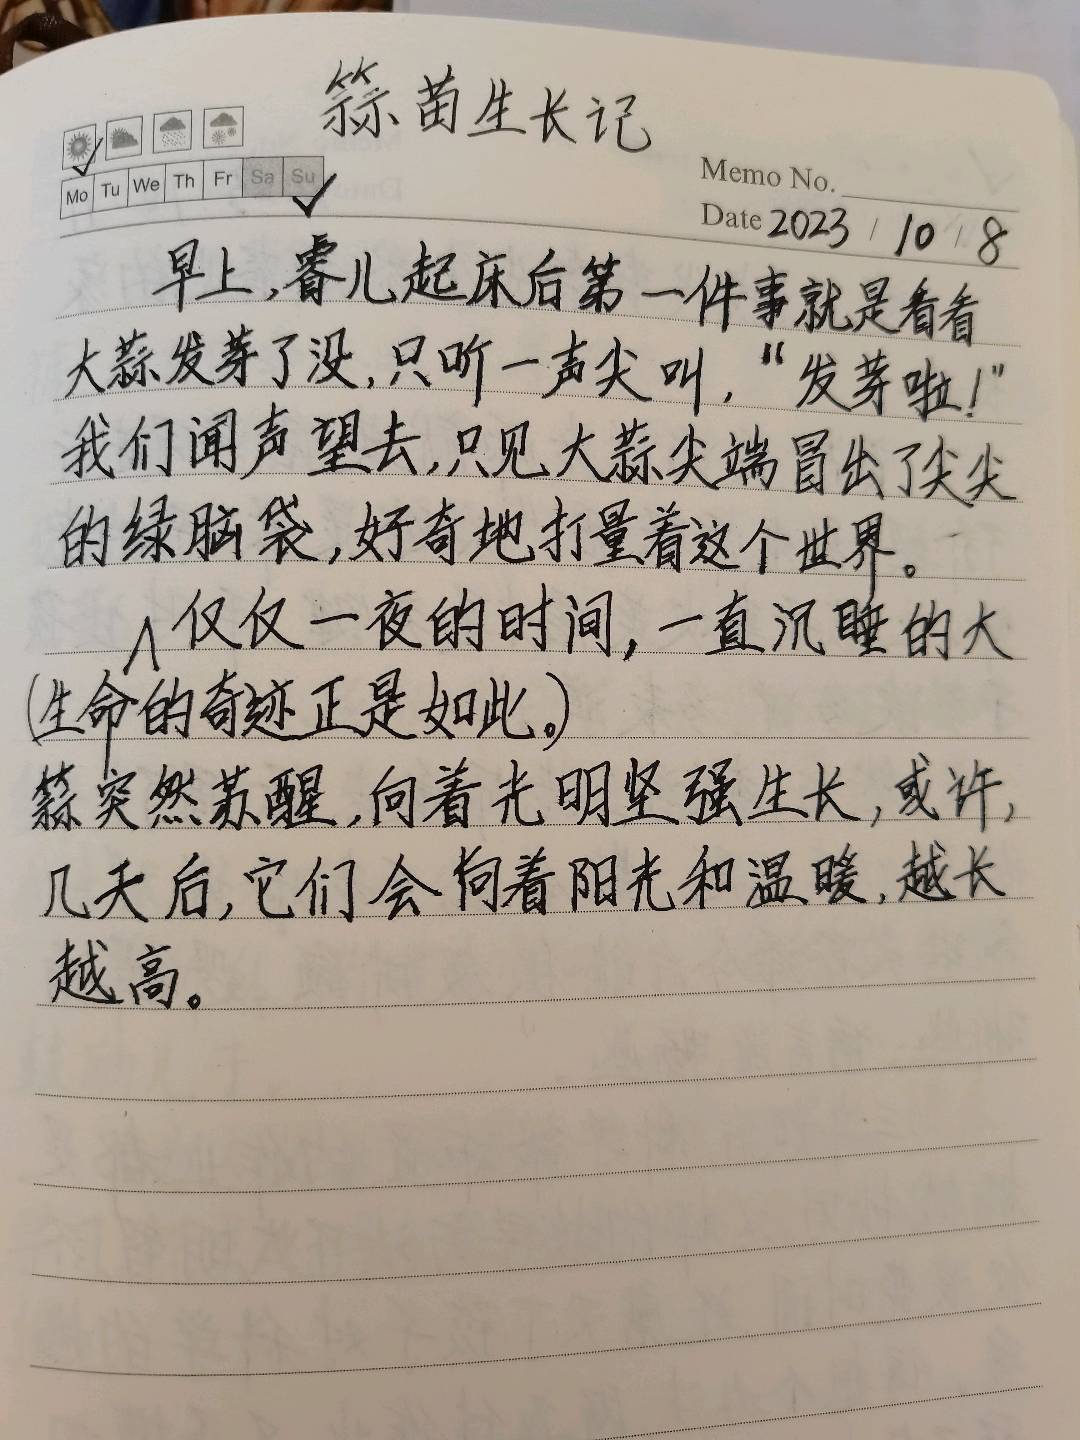 蒜苗生长记
Mo Tu We Th Fr Sa Su
Memo No.
Date 2023 / 10 / 8
早上,睿儿起床后第一件事就是看看
大蒜发芽了没,只听一声尖叫,“发芽啦!”
我们闻声望去,只见大蒜尖端冒出了尖尖
的绿脑袋,好奇地打量着这个世界。
仅仅一夜的时间,一直沉睡的大
(生命的奇迹正是如此。)
蒜突然苏醒,向着光明坚强生长,或许,
几天后,它们会向着阳光和温暖,越长
越高。